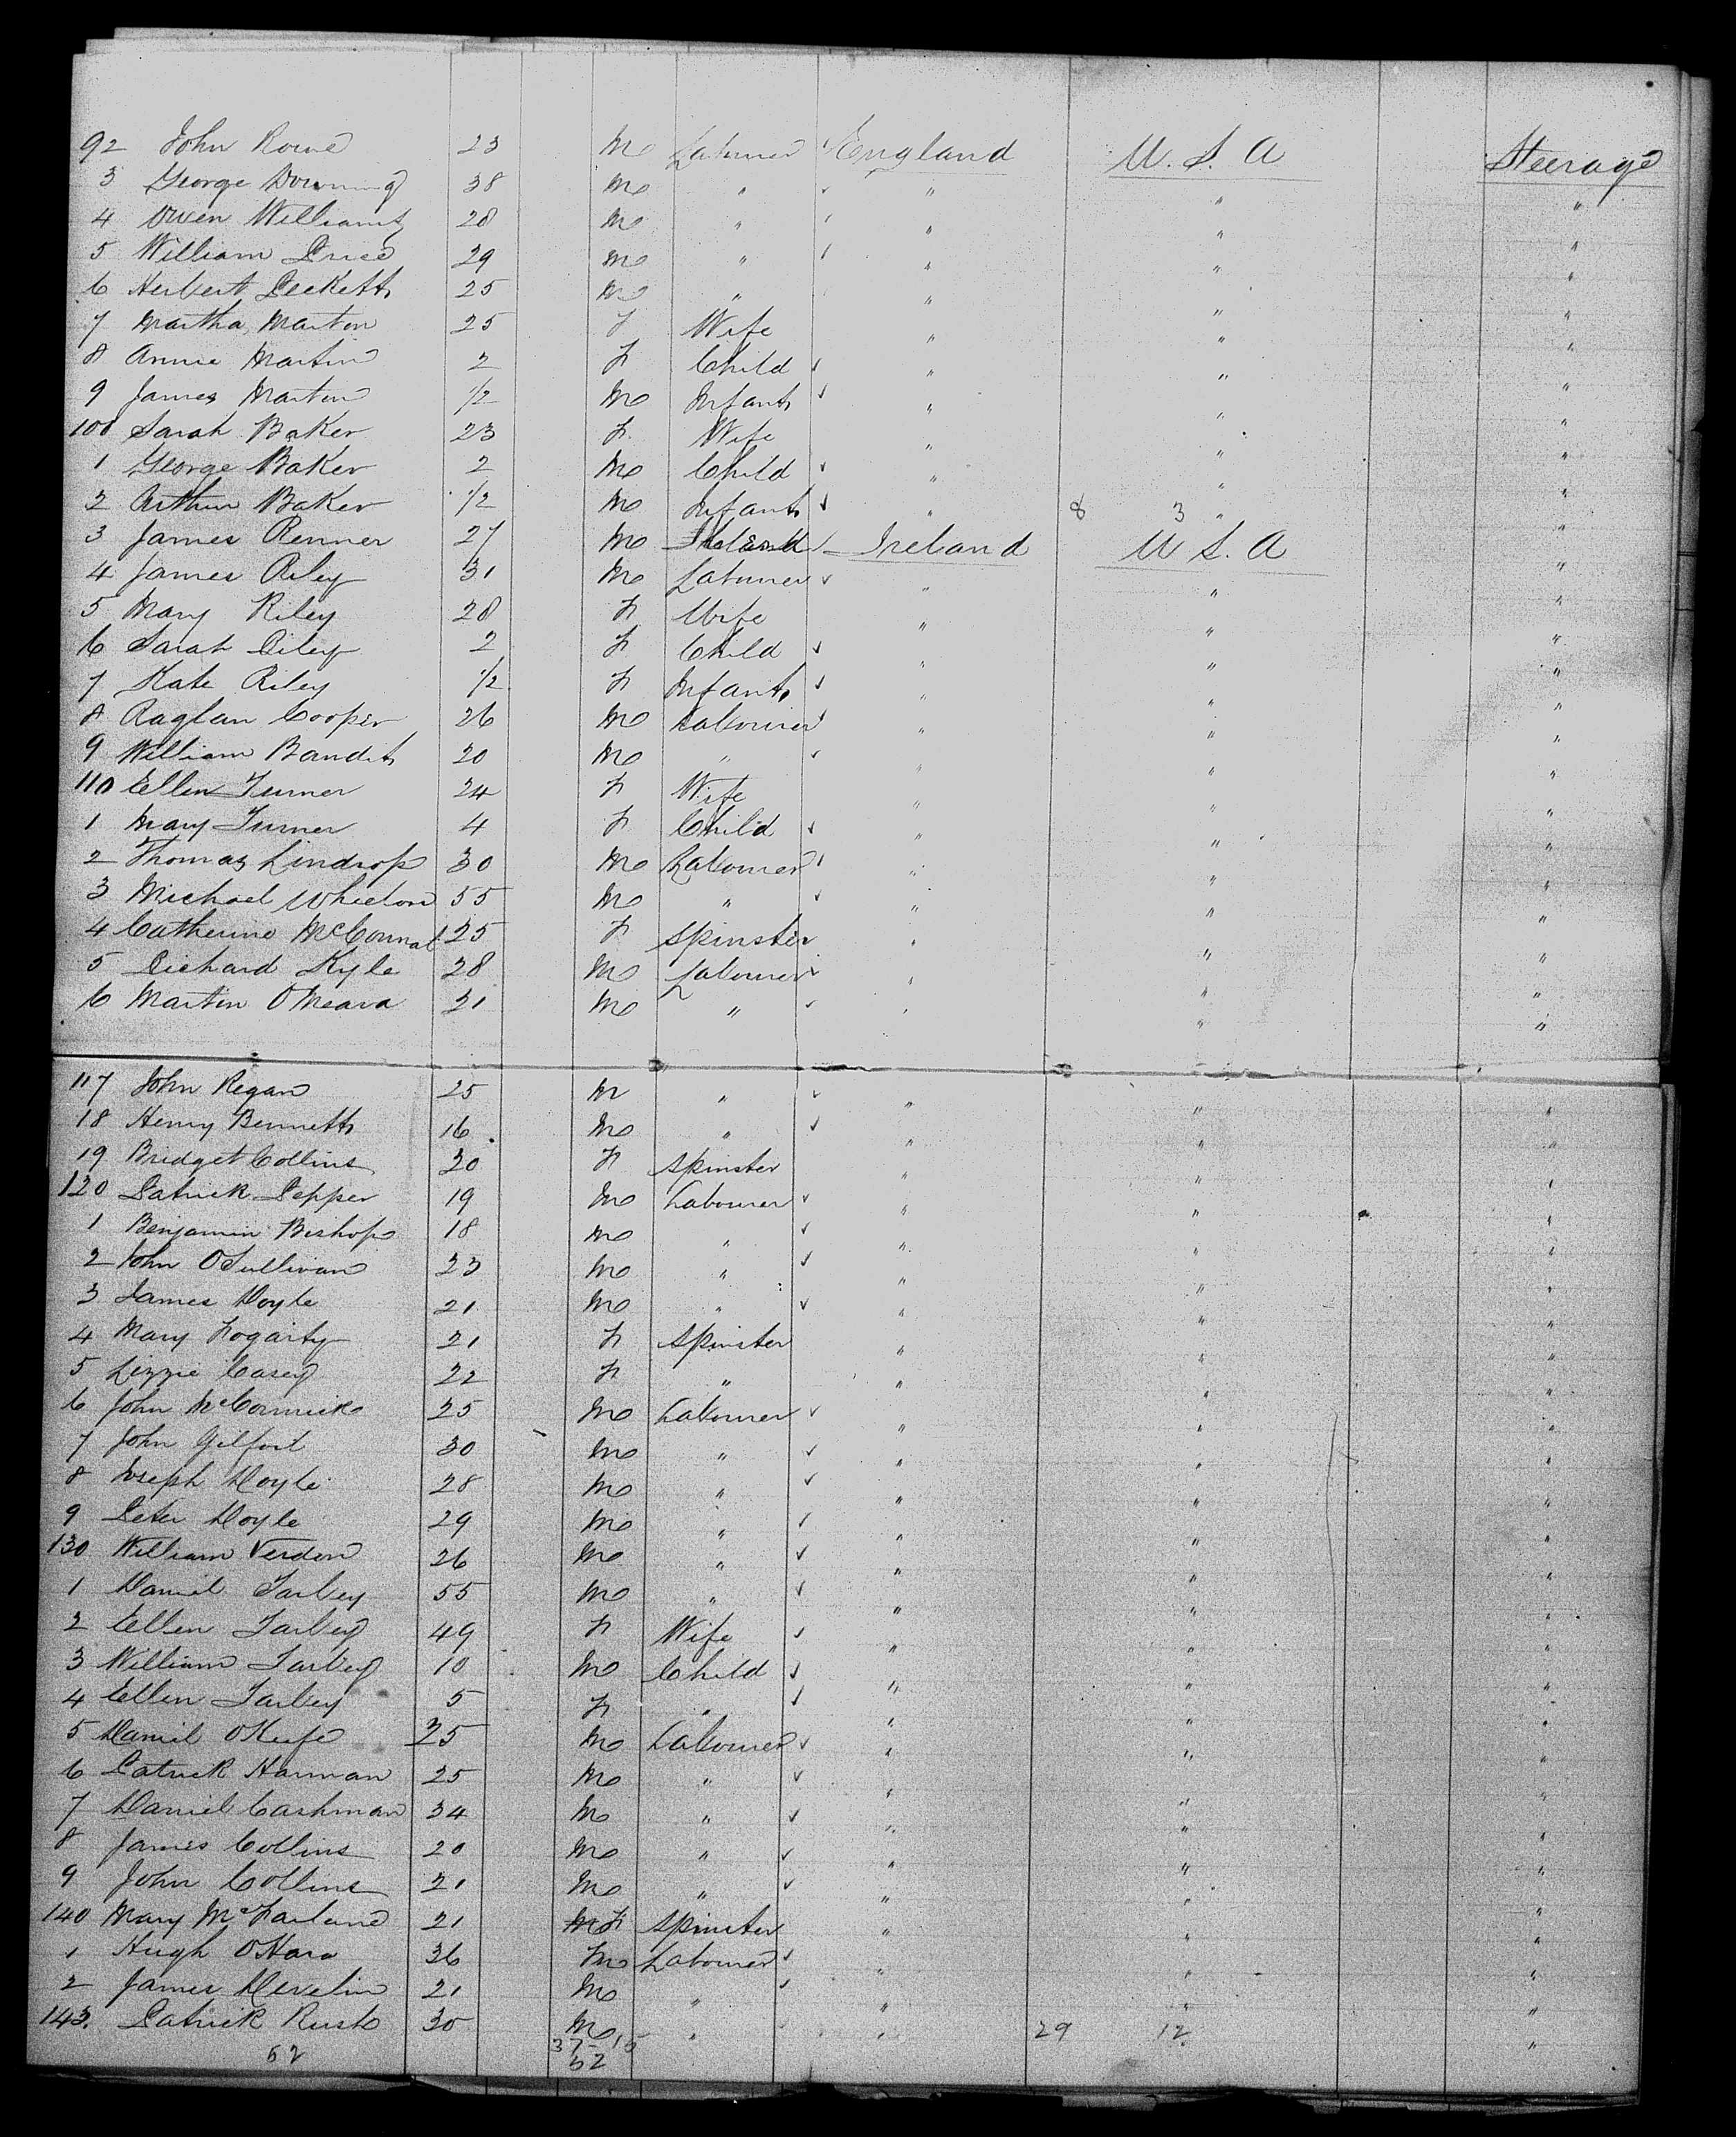 92 John Rowe 23 M Labourer England U.S.A Steerage
3 George Downing 38 M " " " "
4 Owen Williams 28 M " " " "
5 William Price 29 M " " " "
6 Herbert Peckett 25 M " " " "
7 Martha Martin 25 F Wife " " "
8 Annie Martin 2 F Child " " "
9 James Martin 1/2 M Infant " " "
100 Sarah Baker 23 F Wife " " "
1 George Baker 2 M Child " " "
2 Arthur Baker 1/2 M Infant " 8 3 " "
3 James Renner 27 M Ireland U.S.A "
4 James Riley 31 M Labourer " " "
5 Mary Riley 28 F Wife " " "
6 Sarah Riley 2 F Child " " "
7 Kate Riley 1/2 F Infant " " "
8 Raglan Cooper 26 M Labourer " " "
9 William Bandit 20 M " " " "
110 Ellen Turner 24 F Wife " " "
1 Mary Turner 4 F Child " " "
2 Thomas Lindrop 30 M Labourer " " "
3 Michael Whelon 55 M " " " "
4 Catherine McConnal 25 F Spinster " " "
5 Richard Kyle 28 M Labourer " " "
6 Martin O'Meara 21 M " " " "
117 John Regan 25 M " " " "
18 Henry Bennett 16 M " " " "
19 Bridget Collins 20 F Spinster " " "
120 Patrick Pepper 19 M Labourer " " "
1 Benjamin Bishop 18 M " " " "
2 John O'Sullivan 23 M " " " "
3 James Doyle 21 M " " " "
4 Mary Fogarty 21 F Spinster " " "
5 Lizzie Casey 22 F " " " "
6 John McCormick 25 M Labourer " " "
7 John Gilfoil 30 M " " " "
8 Joseph Doyle 28 M " " " "
9 Peter Doyle 29 M " " " "
130 William Verdon 26 M " " " "
1 Daniel Tarbey 55 M " " " "
2 Ellen Tarbey 49 F Wife " " "
3 William Tarbey 10 M Child " " "
4 Ellen Tarbey 5 F " " " "
5 Daniel O'Keefe 25 M Labourer " " "
6 Patrick Harman 25 M " " " "
7 Daniel Cashman 34 M " " " "
8 James Collins 20 M " " " "
9 John Collins 21 M " " " "
140 Mary McFarland 21 F Spinster " " "
1 Hugh O'Hara 36 M Labourer " " "
2 James Develin 21 M " " " "
143. Patrick Rusk 30 M " " 29 12 "
52 37-15
52